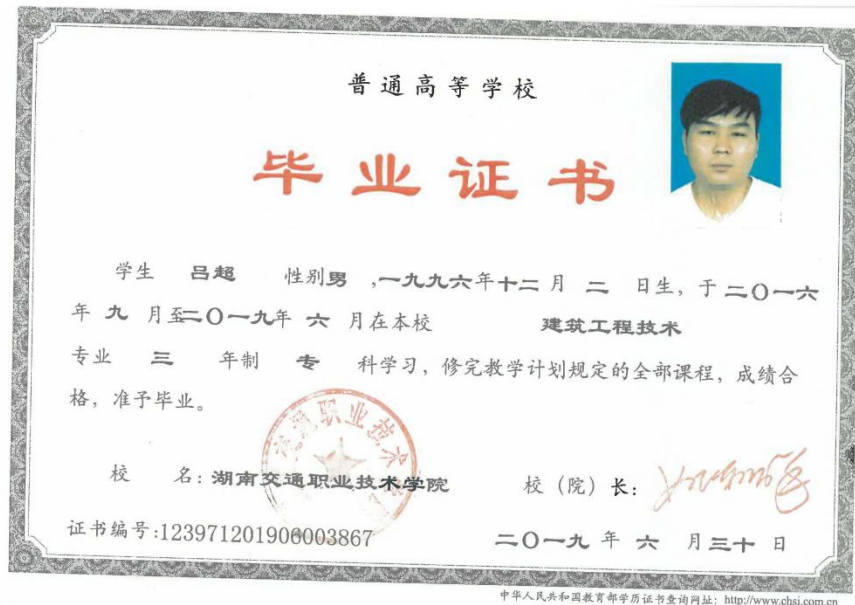 普通高等学校
毕业证书
学生 吕超 性别男 ,一九九六年十二月 二 日生, 于二〇一六
年 九 月至二〇一九年 六 月在本校 建筑工程技术
专业 三 年制 专 科学习, 修完教学计划规定的全部课程, 成绩合
格, 准予毕业。
交通职业技术学
校 名: 湖南交通职业技术学院 校 (院) 长:
证书编号:123971201906003867 二〇一九 年 六 月三十 日
中华人民共和国教育部学历证书查询网址: http://www.chsi.com.cn